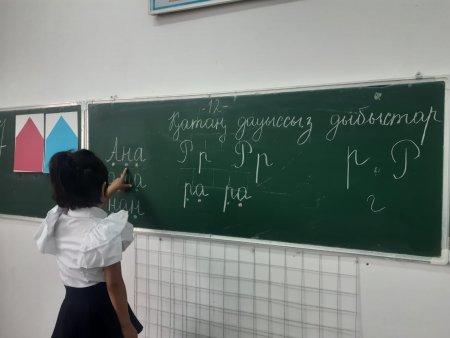 -12-
Қатаң дауыссыз дыбыстар
Ана Рр Рр р. Р
а
нан ра ра